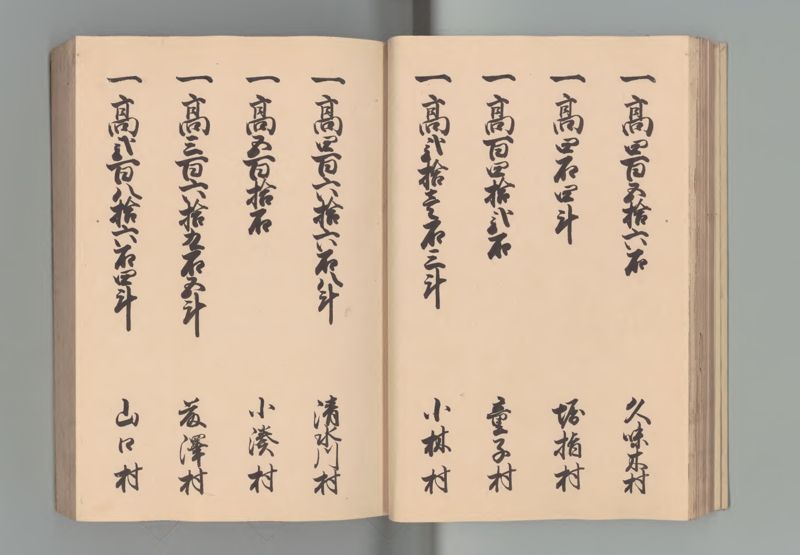 一高四百五拾六石 久味木村
一高四石四斗 堀指村
一高百四拾弐石 童子村
一高弐拾壱石三斗 小林村
一高四百六拾六石八斗 清水川村
一高五百拾石 小湊村
一高三百六拾九石五斗 藤澤村
一高弐百八拾六石四斗 山口村